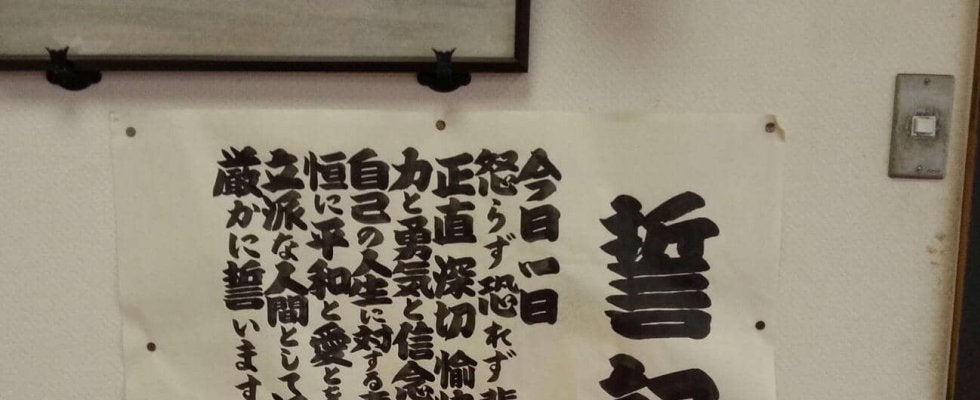 誓
今日一日
怒らず恐れず
正直深切愉
力と勇気と信念
自己の人生に対する
恒に平和と愛とを
立派な人間として
厳かに誓います